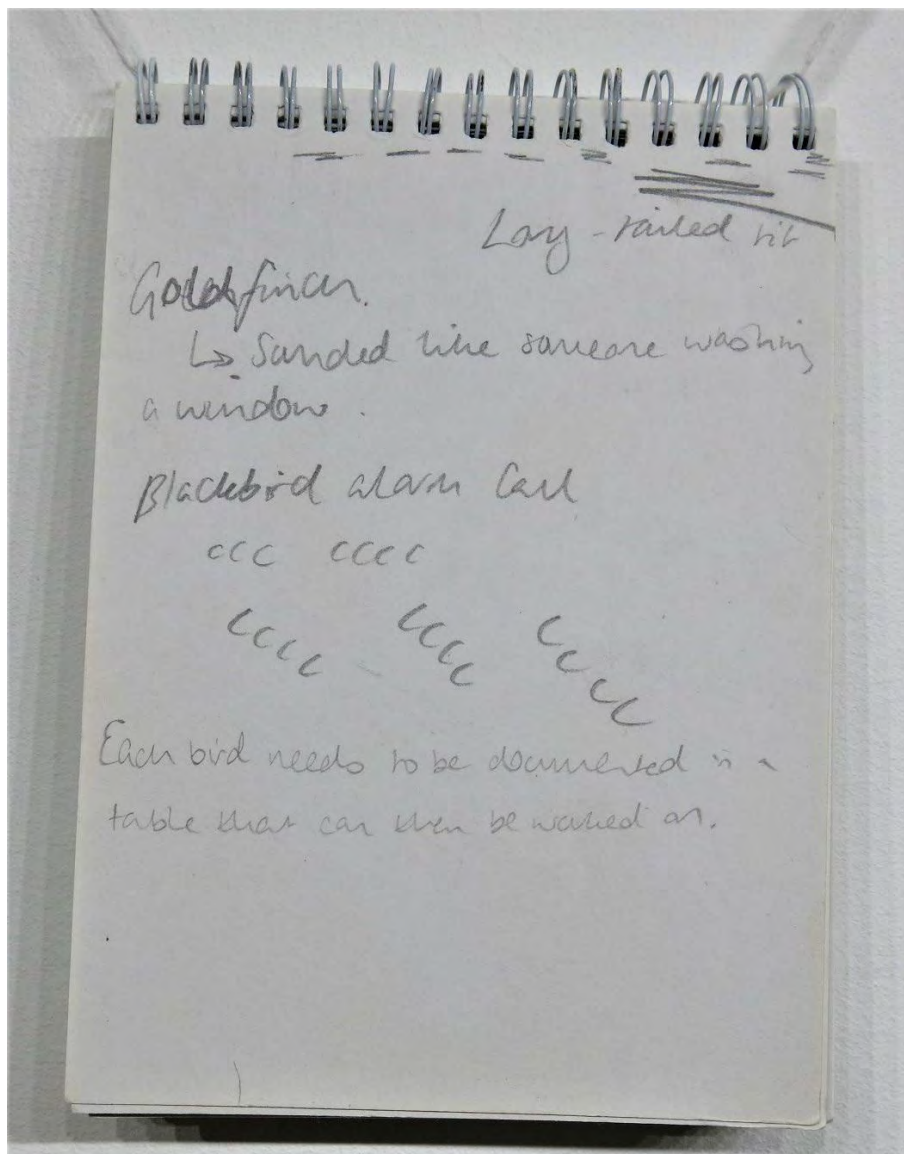 Long-tailed tit
Goldfinch.
↳ Sounded like someone washing
a window.
Blackbird alarm Call
ccc cccc
cccc cccc cccc
Each bird needs to be documented in a
table that can then be worked on.